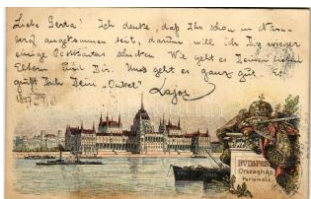 Liebe Berta! Ich denke, daß Ihr schon in
angekommen seit, darum will ich Dir
einige Postkarten schicken. Wie geht es Deinen lieben
Eltern und Dir. Uns geht es ganz gut. Es
grüßt Dich Dein "Onkel"
Lajos
BUDAPEST
Országház
Parlament